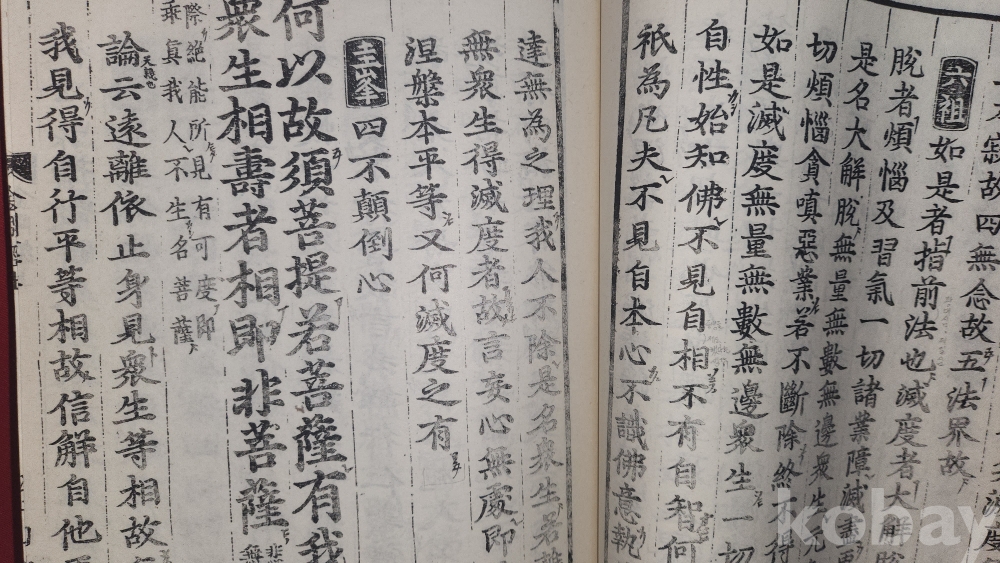 寂故四無念故五法界故
六祖 如是者指前法也滅度者大解脫
脫者煩惱及習氣一切諸業障滅盡更
是名大解脫無量無數無邊衆生元
切煩惱貪嗔惡業若不斷除終不得
如是滅度無量無數無邊衆生一切
自性始知佛不見自相不有自智何
祇為凡夫不見自本心不識佛意執
達無為之理我人不除是名衆生若無
無衆生得滅度者故言妄心無處即
涅槃本平等又何滅度之有
圭峯 四不顛倒心
何以故須菩提若菩薩有我
衆生相壽者相即非菩薩
際絶能所見有可度即非
乘眞我人不生名菩薩無
論云遠離依止身見衆生等相故
我見得自行平等相故信解自他
kobay